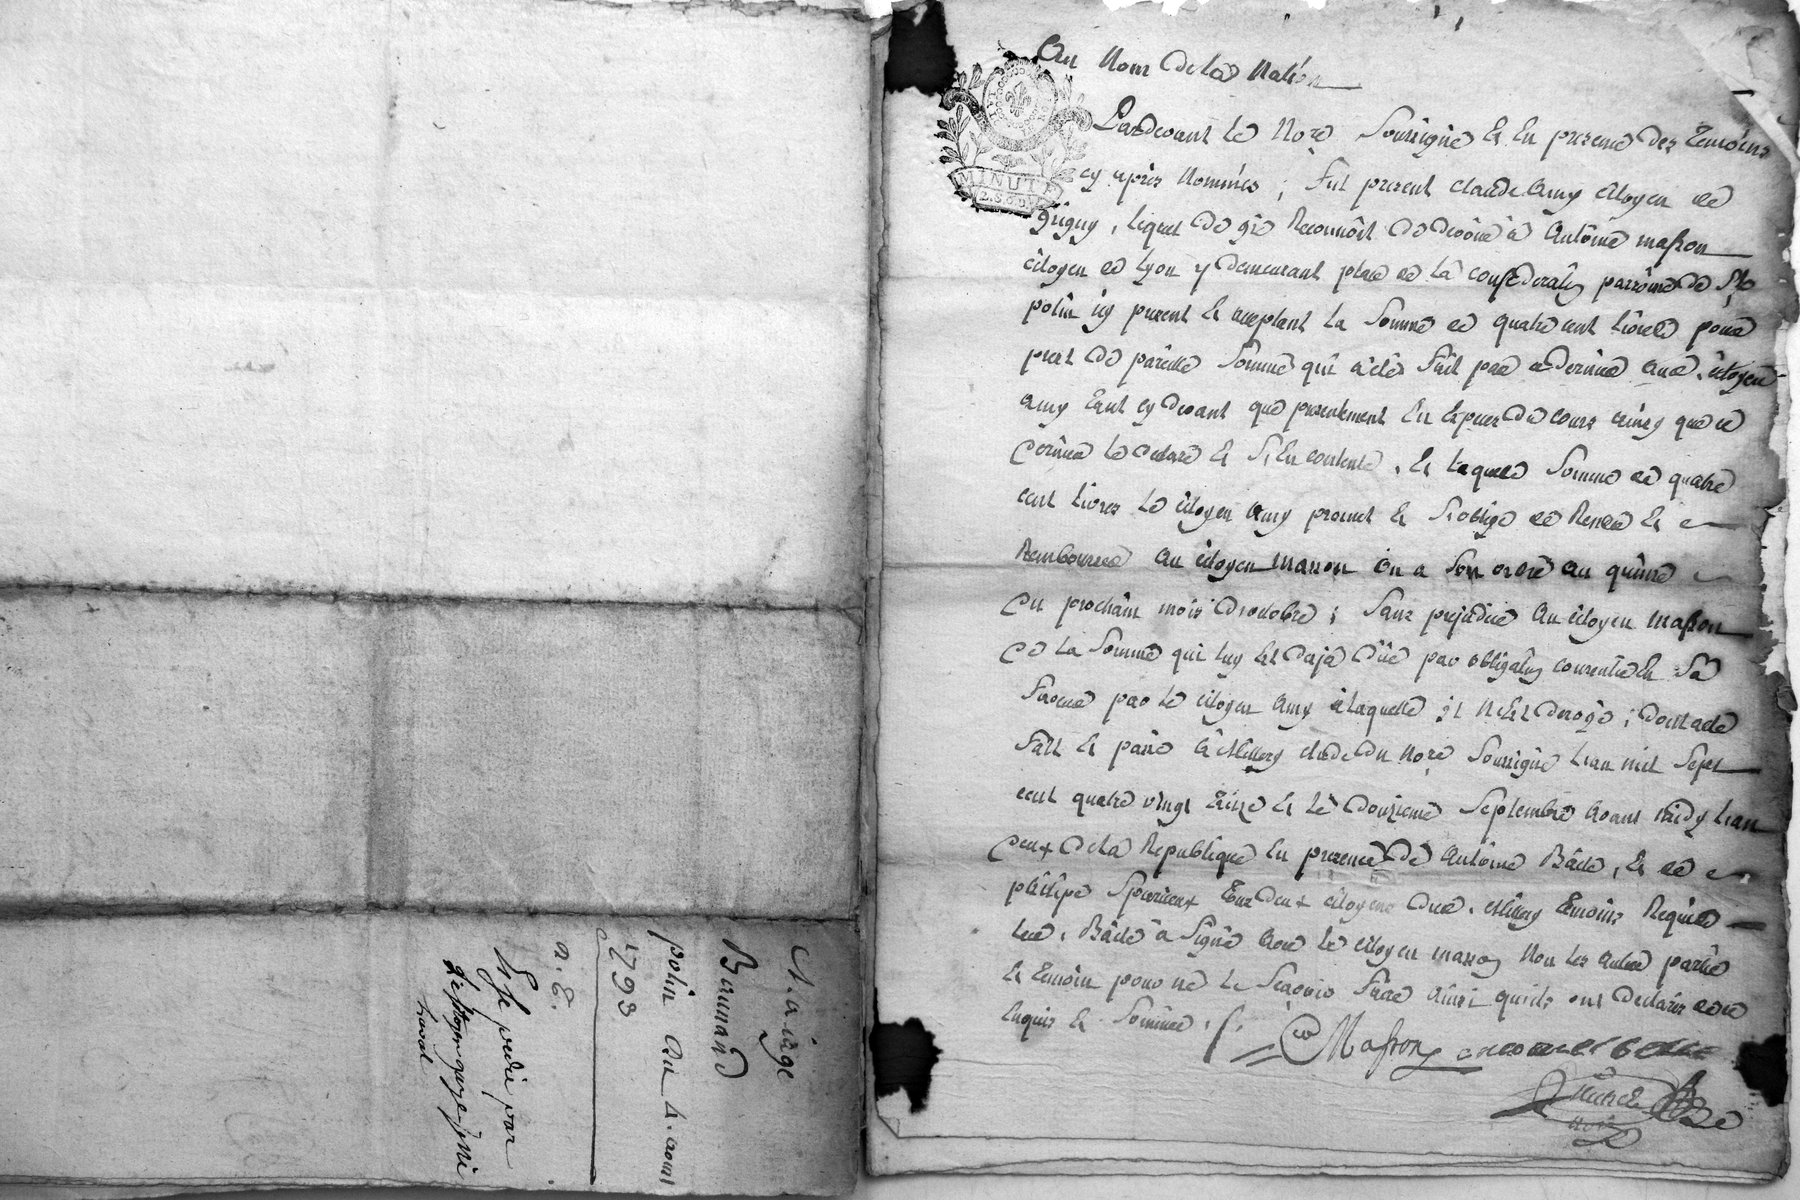 Au Nom de la Nation
Pardevant le Nore Soussigné & En presence des temoins
MINUTE
2.S.6.D.
cy apres Nommés ; fut present Claude Amy citoyen de
grigny, lequel de gré Reconnoit de devoir à Antoine Masson
citoyen de Lyon y demeurant place de la confederaon paroisse de St
polin icy present & acceptant la Somme de quatre cent livres pour
prest de pareille Somme qui a été fait par ce dernier aud. citoyen
amy tant cy devant que presentement En Espèces de cours ainsy que ce
dernier le declare & S'En contente, & laquelle Somme de quatre
cent livres le citoyen amy promet & S'oblige de Rendre &
Rembourser au citoyen masson ou a Son ordre au quinze
du prochain mois d'octobre ; Sans prejudice au citoyen Masson
de la Somme qui luy Est deja düe par obligaon consentie En Sa
faveur par le citoyen amy à laquelle il n'Est derogé ; dont acte
fait & passé à Millery etude du Nore Soussigné l'an mil Sept
cent quatre vingt treize & le douzieme Septembre avant midy l'an
deux de la Republique En presence de Antoine Bâdé, & de
philipe Sperieux tous deux citoyens dud. Millery temoins Requis
led. Bâdé a Signé avec le citoyen masson Non les autres partie
& temoin pour ne le Scavoir faire ainsi quils ont declarés de ce
Enquis & Sommés ./.
Masson
Nore
Mariage
Bannand
polin Du 4. aoust
1793
n. 6.
Exp. pedié par
le citoyen